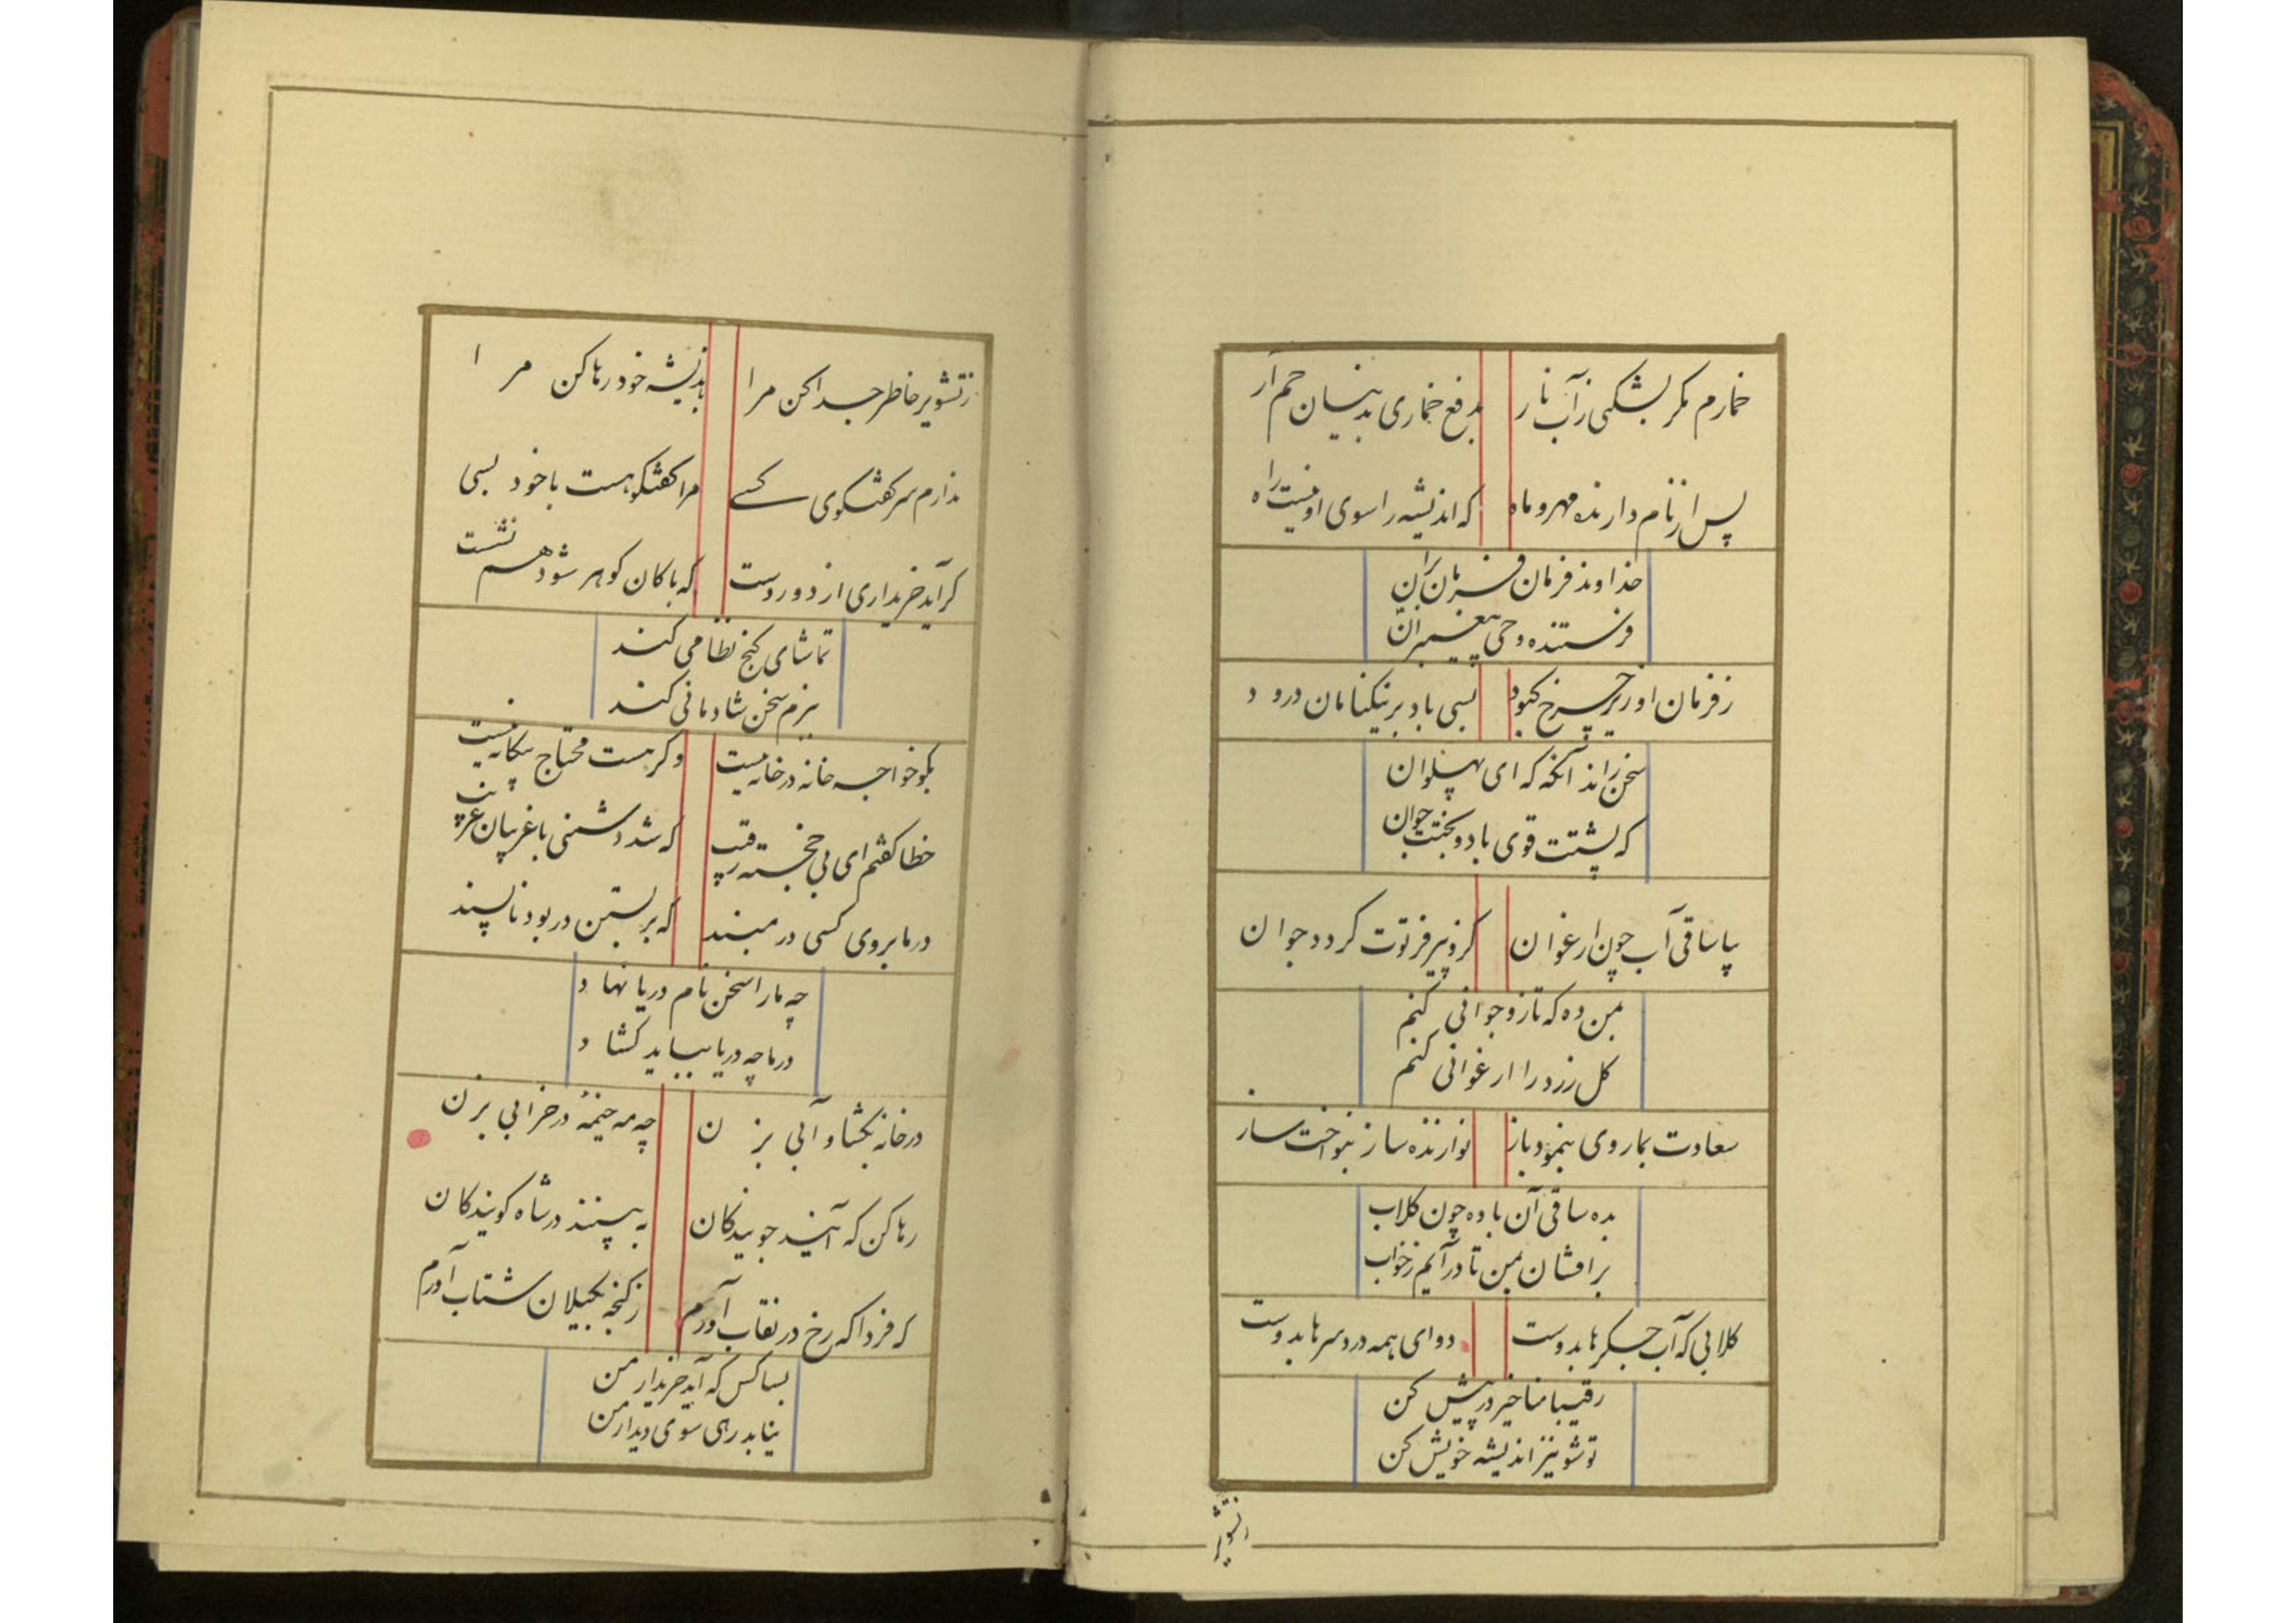 خمارم مکر بشکنی زآب نار
بدفع خماری بدینسان خم آر
پس از نام دارنده مهر و ماه
که اندیشه را سوی او نیست راه
خداوند فرمان فرمان بران
فرستنده وحی پیغمبران
زفرمان او زیر چرخ کبود
بسی باد بر نیکنامان درود
سخن راند آنکه که ای پهلوان
که پشتت قوی باد و بختت جوان
بیا ساقی آب چون ارغوان
کزو پیر فرتوت کردد جوان
بمن ده که تا زو جوانی کنم
کل زرد را ارغوانی کنم
سعادت بما روی بنمود باز
نوازنده ساز بنواخت ساز
بده ساقی آن باده چون کلاب
برافشان بمن تا درآیم زخواب
کلابی که آب جسکرها بدوست
دوای همه درد سرها بدوست
رقیبا مناخیز در پیش کن
تو شو نیز اندیشه خویش کن
زتشویر
زتشویر خاطر جدا کن مرا
باندیشه خود رها کن مرا
ندارم سر کفتکوی کسے
مرا کفتکو هست با خود بسی
کر آید خریداری از دور دست
که با کان کوهر شود هم نشست
تماشای کنج نظامی کند
ببزم سخن شادمانی کند
بکو خواجه خانه در خانه نیست
وکر هست محتاج بیکانه نیست
خطا کفتم ای پی خجسته رقیب
که شد دشمنی با غریبان غریب
در ما بروی کسی در مبند
که بر بستن در بود ناپسند
چه ما را سخن نام دریا نهاد
در ما چه دریا بباید کشاد
در خانه بکشا و آبی بزن
چه مه خیمهٔ در خرابی بزن
رها کن که آیند جویندکان
به بینند در شاه کویندکان
که فردا که رخ در نقاب آورم
زکنجه بکیلان شتاب آورم
بسا کس که آید خریدار من
نیابد رهی سوی دیدار من